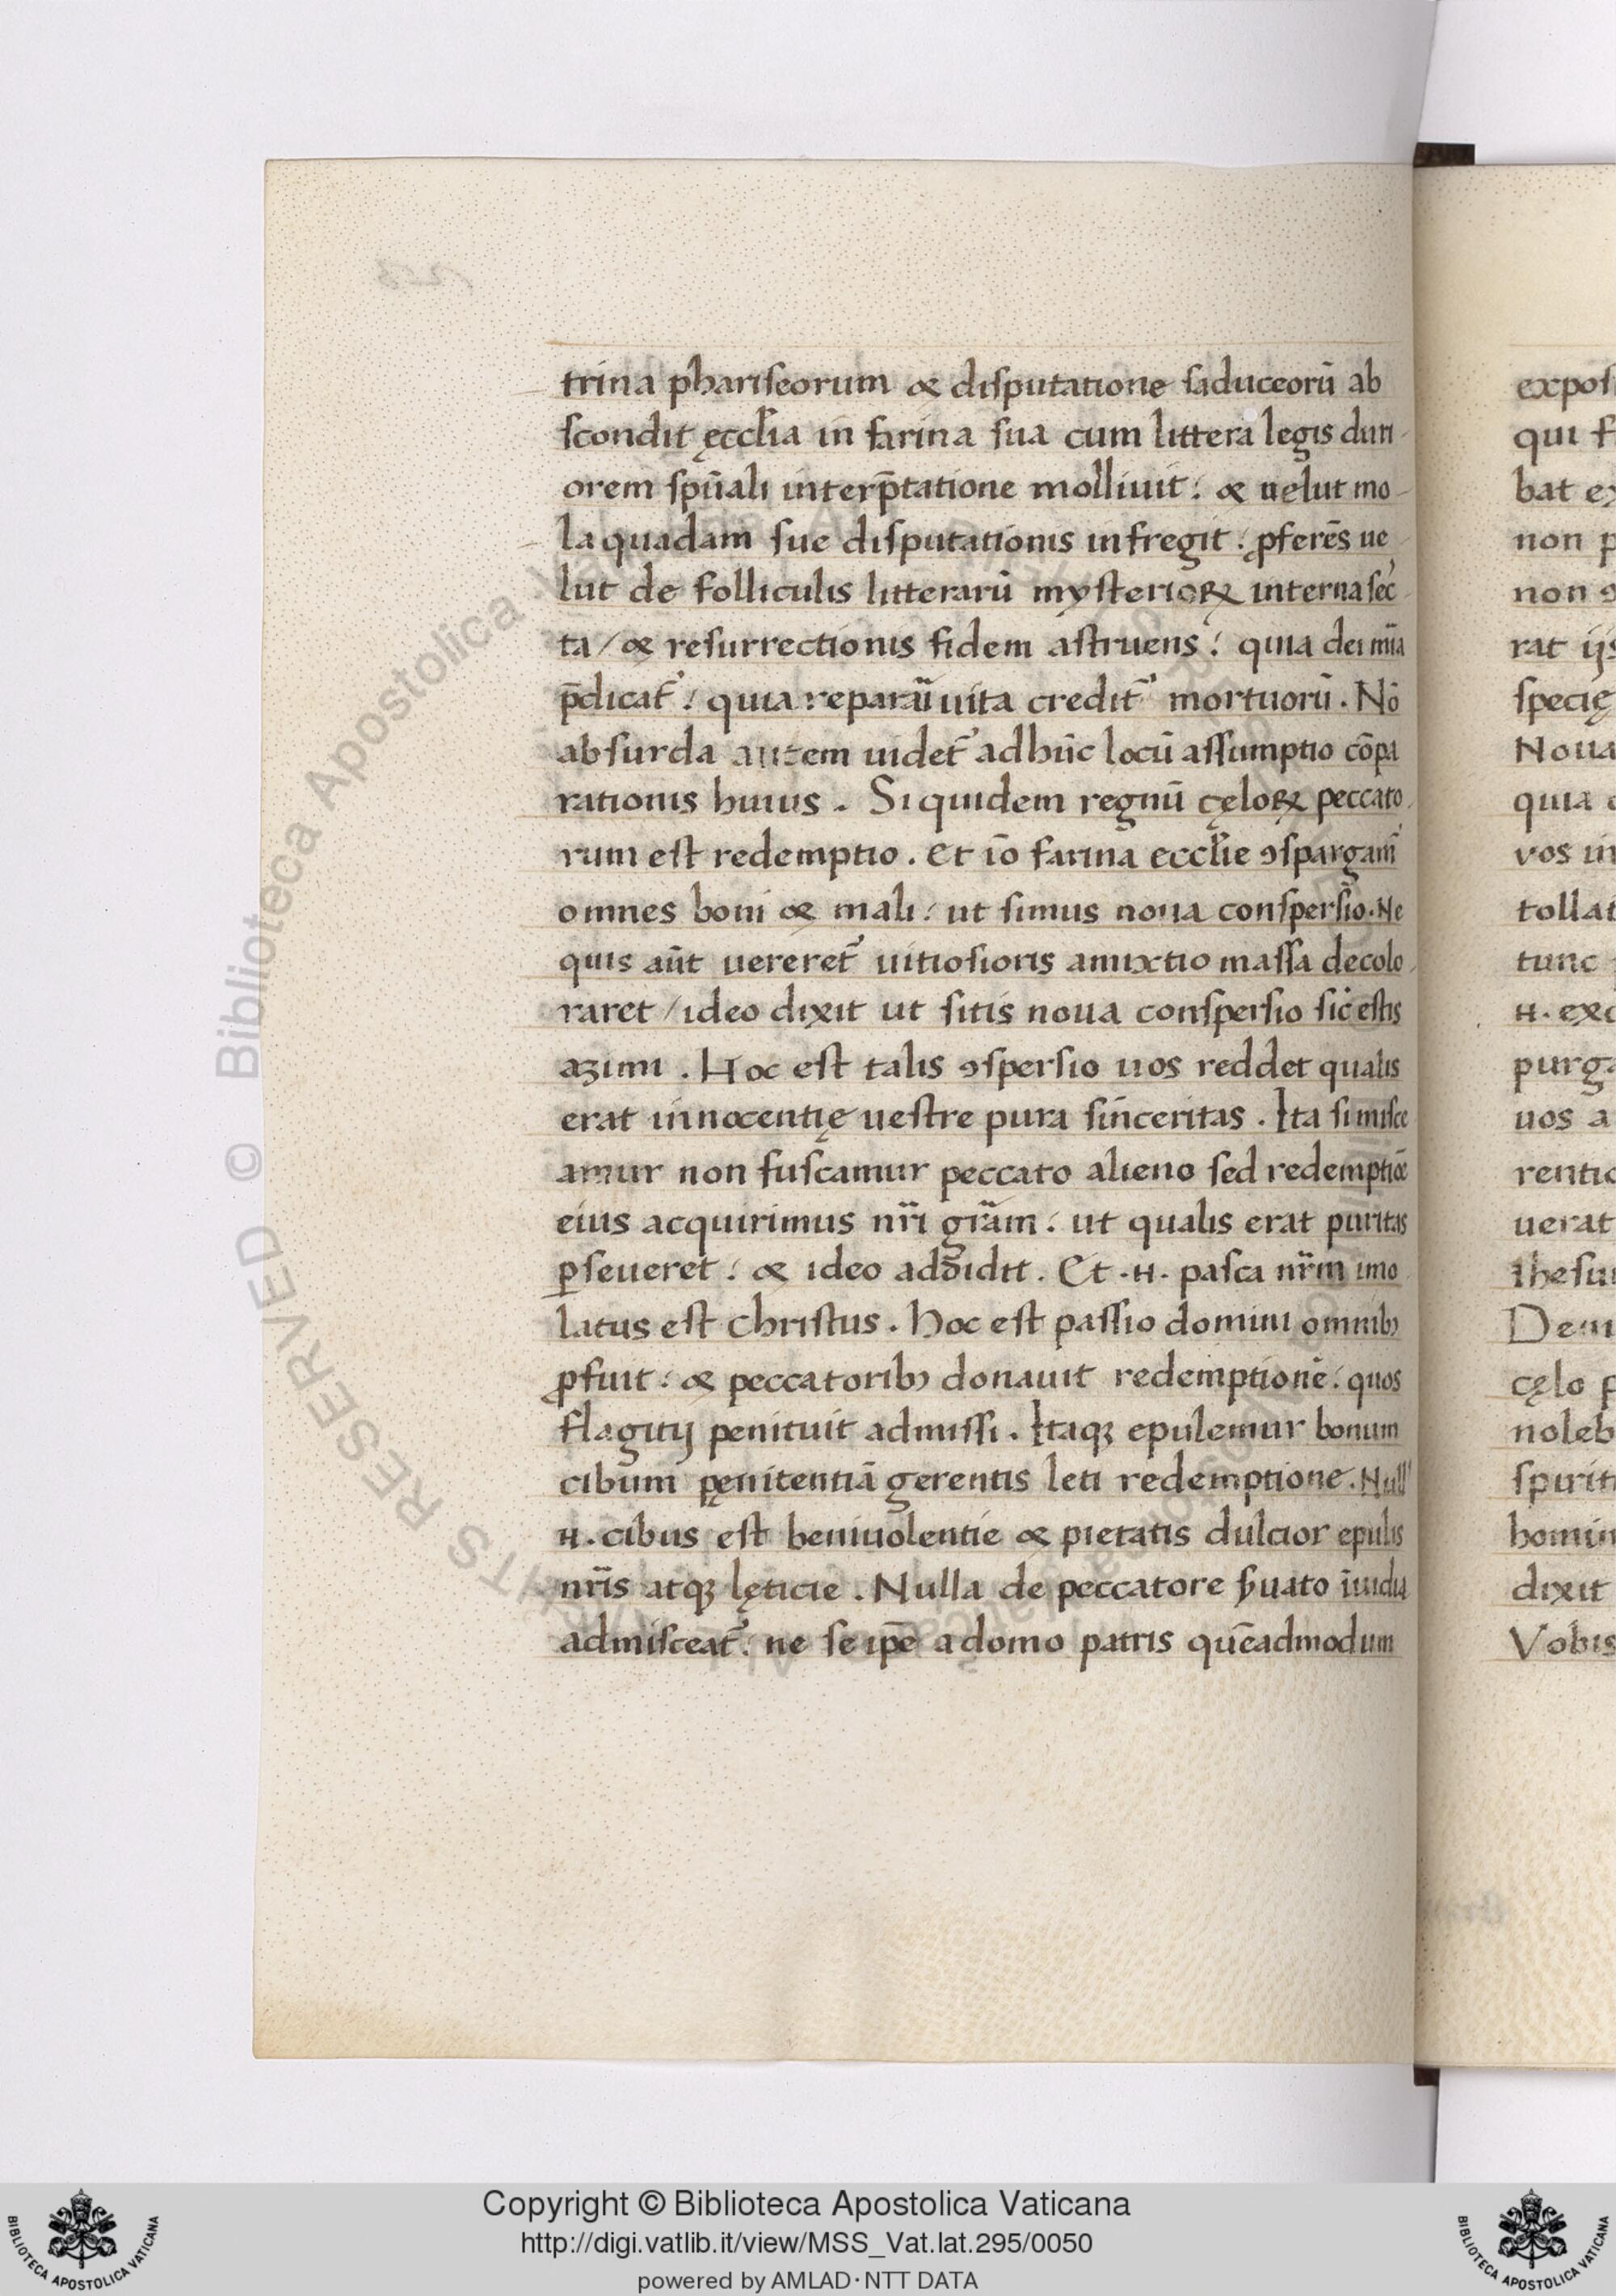 trina phariseorum & disputatione saduceorū ab
scondit ęcclīa in farina sua cum litterā legis duri-
orem spūali interp̄tatione molliuit: & uelut mo-
la quadam sue disputationis infregit: ꝓferēs ue
lut de folliculis litterarū mysterioꝝ interna sec̓
ta / & resurrectionis fidem astruens: quia dei mīa
p̄dicat᷑: quia reparari uita credit᷑ mortuorū. Nō
absurda autem uidet᷑ ad hūc locū assumptio cōpa
rationis huius. Si quidem regnū cęloꝝ peccato
rum est redemptio. Et iō farina ecclīe ꝯspargam᷑
omnes boni & mali: ut simus noua conspersio. Ne
quis aūt uereret᷑ uitiosioris amixtio massa decolo
raret / ideo dixit ut sitis noua conspersio sic̓ estis
azimi. Hoc est talis ꝯspersio uos reddet qualis
erat innocentię uestre pura sinceritas. Ita si misce
amur non fuscamur peccato alieno sed redemptiōe
eius acquirimus nr̄i grām: ut qualis erat puritas
ꝑseueret: & ideo addidit. Et .H. pasca nr̄m imo
latus est christus. Hoc est passio domini omnibꝫ
ꝓfuit: & peccatoribꝫ donauit redemptionē: quos
flagitij penituit admissi. Itaqꝫ epulemur bonum
cibum pęnitentiā gerentis leti redemptione. Null'
H. cibus est beniuolentie & pietatis dulcior epulis
nr̄is atqꝫ lęticie. Nulla de peccatore ẜuato īuidia
admisceat᷑: ne se ip̄e a domo patris quēadmodum
exposi
qui f
bat ex
non p
non ꝯ
rat ijs
specię
Noua
quia
vos in
tollat
tunc
H. exc
purga
uos a
rentio
uerat
thesu
Deu
cęlo p
noleb
spirit
homin
dixit
Vobis
© Biblioteca Apostolica Vaticana
RESERVED
Copyright © Biblioteca Apostolica Vaticana
http://digi.vatlib.it/view/MSS_Vat.lat.295/0050
powered by AMLAD·NTT DATA
BIBLIOTECA APOSTOLICA VATICANA
BIBLIOTECA APOSTOLICA VATICANA